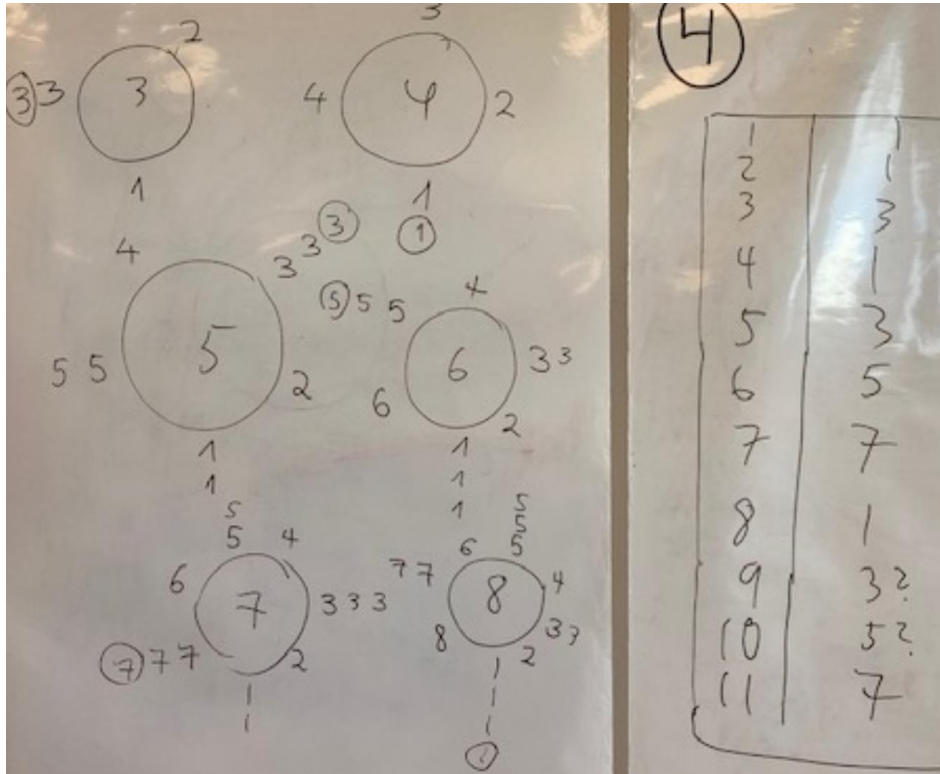 2
③ 3 3
1
3
4 4 2
1
①
4
3 3 ③
5
5 5
2
1
1
⑤ 5 5
4
6
3 3
6
2
1
1
1
5
5 4
6
7
3 3 3
⑦ 7 7
2
1
1
5
5
6 5
7 7
8
4
3 3
8
2
1
1
1
④
1 1
2 1
3 3
4 1
5 3
6 5
7 7
8 1
9 3?
10 5?
11 7